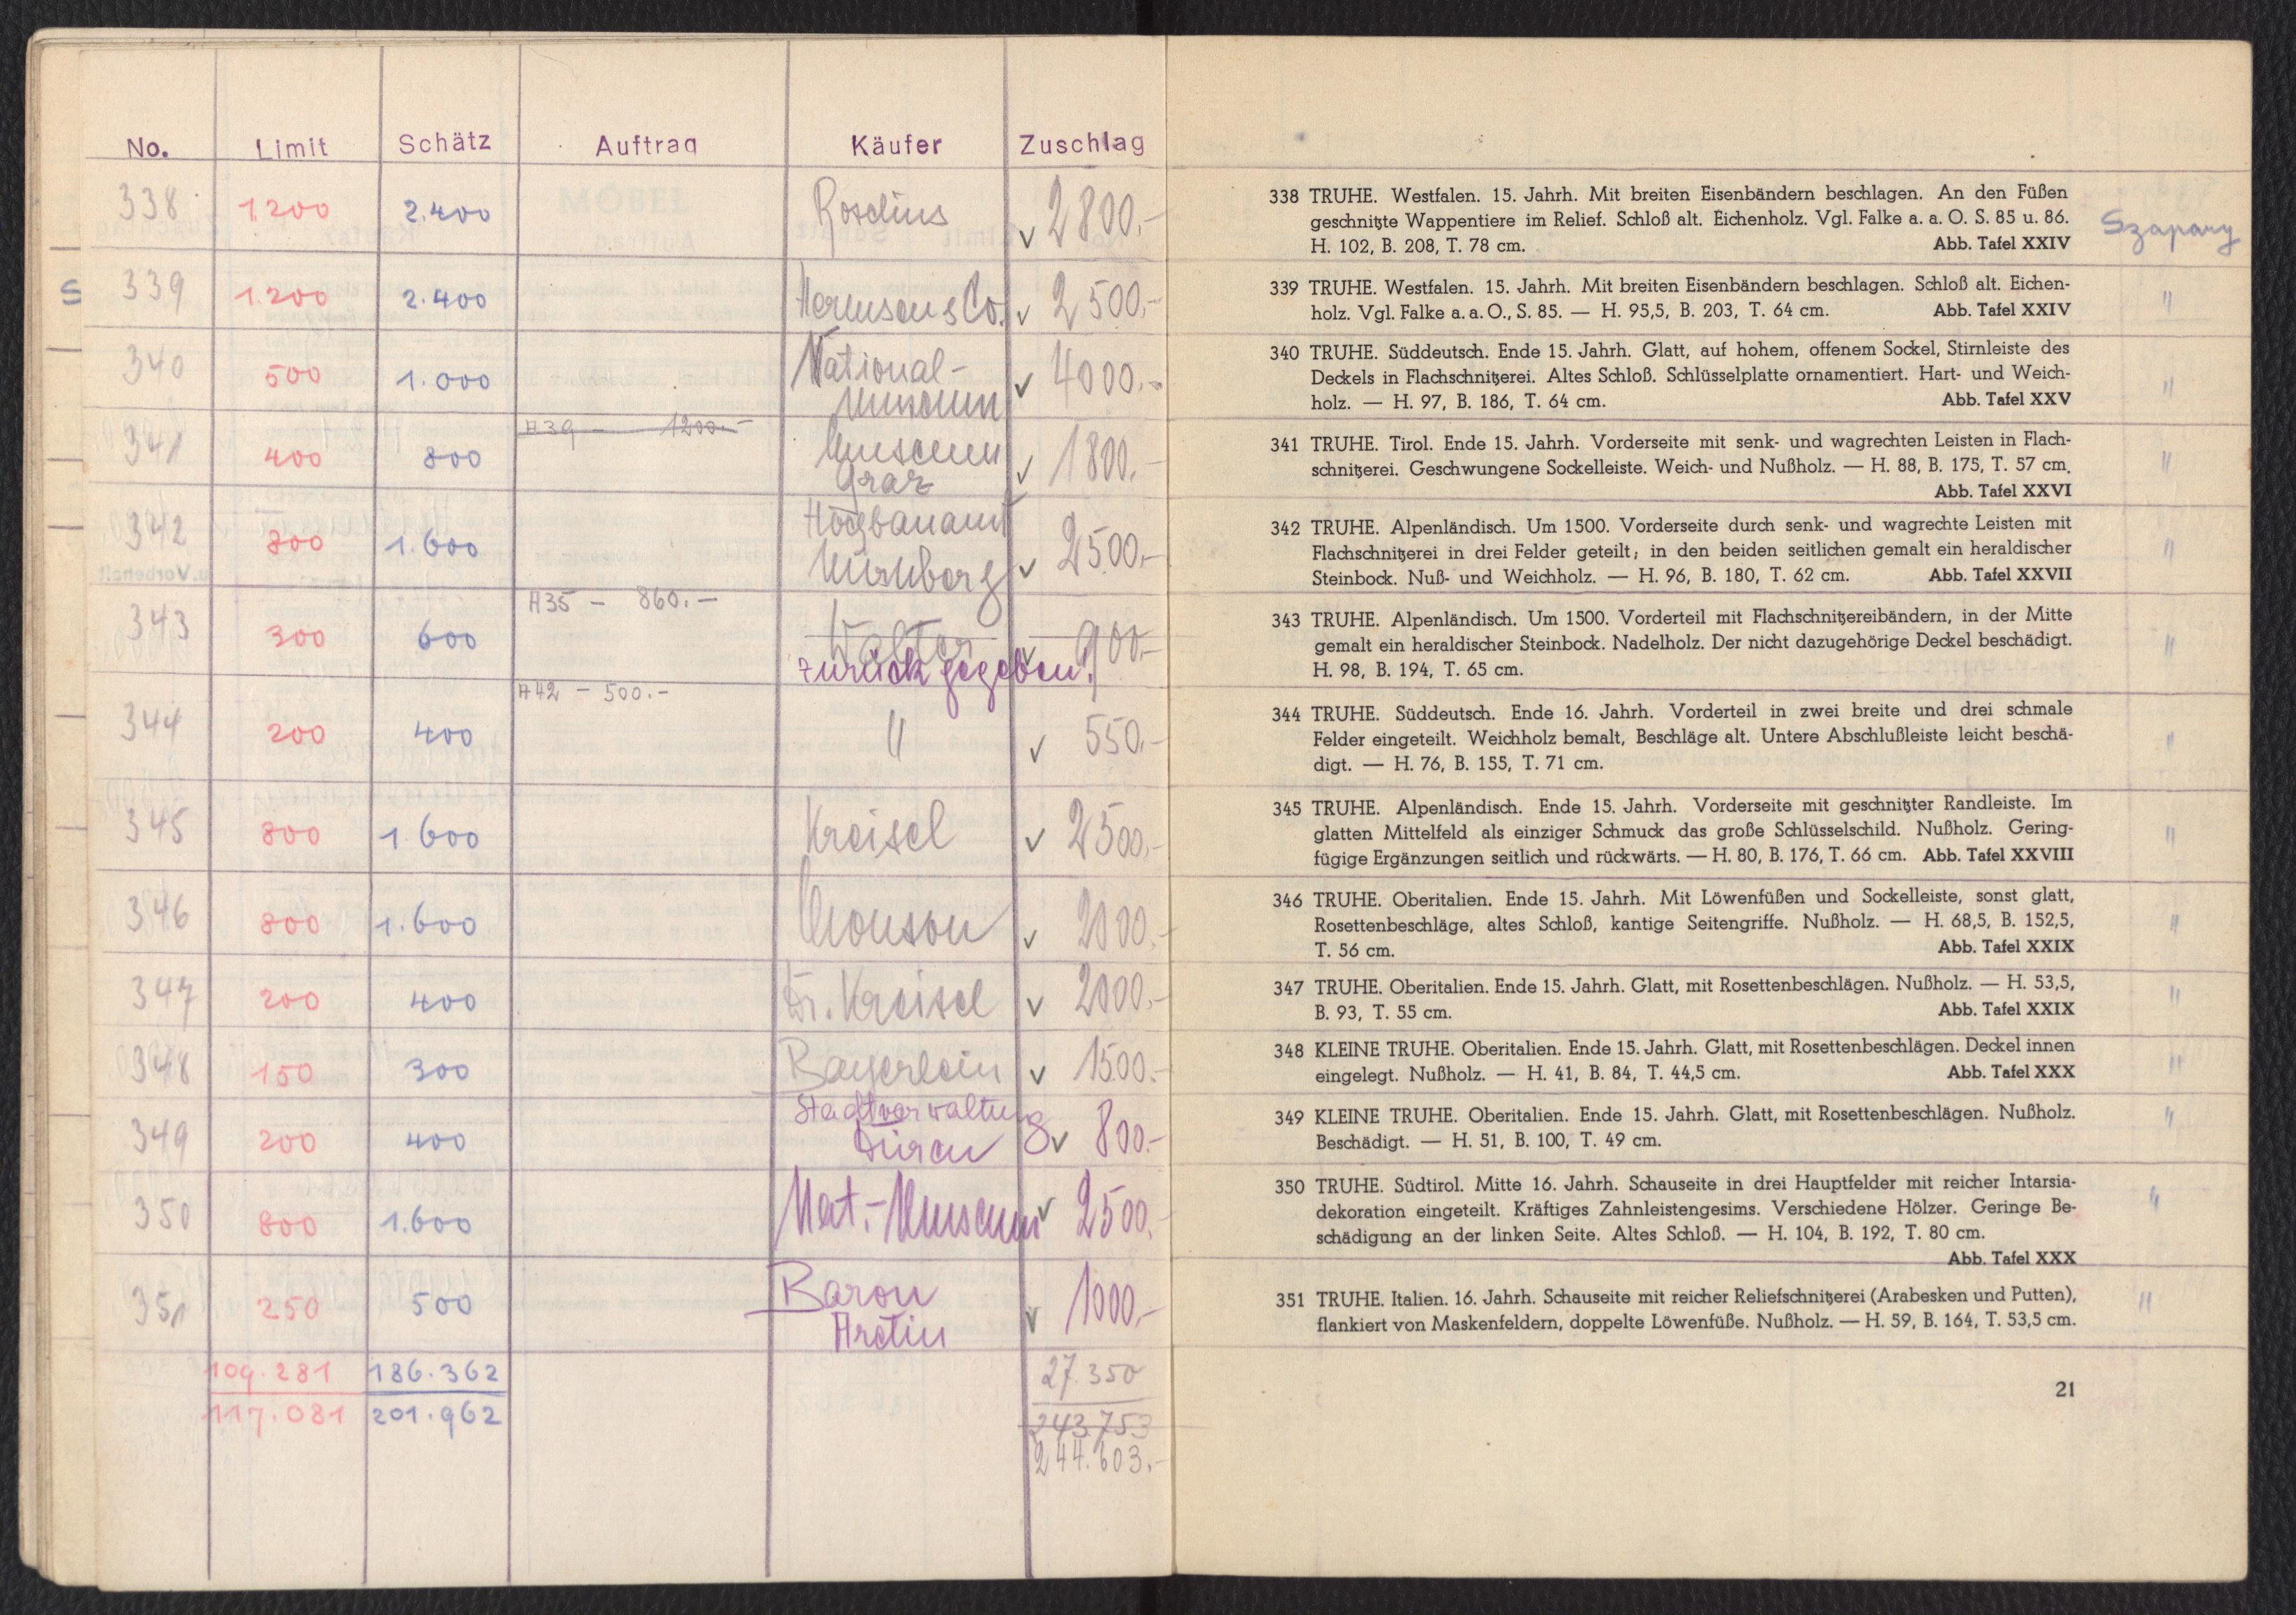 No. Limit Schätz Auftrag Käufer Zuschlag
338 1.200 2.400 Roselius √ 2800.-
S 339 1.200 2.400 Hermsen & Co. √ 2500.-
340 500 1.000 National-
museum √ 4000.-
A39 - 1200.-
341 400 800 Museum
Graz √ 1800.-
342 800 1.600 Hochbauamt
Nürnberg √ 2500.-
A35 - 860.-
343 300 600 Walter √ 900.-
zurückgegeben!
A42 - 500.-
344 200 400 " √ 550.-
345 800 1.600 Kreisel √ 2500.-
346 800 1.600 √ 2000.-
347 200 400 Dr. Kreisel √ 2000.-
348 150 300 Bayerlein √ 1500.-
349 200 400 Stadtverwaltung
Düren √ 800.-
350 800 1.600 Nat.-Museum √ 2500.
351 250 500 Baron
Aretin √ 1000.-
109.281 186.362 27.350
117.081 201.962 243.753
244.603.-
338 TRUHE. Westfalen. 15. Jahrh. Mit breiten Eisenbändern beschlagen. An den Füßen
geschnitzte Wappentiere im Relief. Schloß alt. Eichenholz. Vgl. Falke a. a. O. S. 85 u. 86.
H. 102, B. 208, T. 78 cm. Abb. Tafel XXIV
Szapary
339 TRUHE. Westfalen. 15. Jahrh. Mit breiten Eisenbändern beschlagen. Schloß alt. Eichen-
holz. Vgl. Falke a. a. O., S. 85. — H. 95,5, B. 203, T. 64 cm. Abb. Tafel XXIV "
340 TRUHE. Süddeutsch. Ende 15. Jahrh. Glatt, auf hohem, offenem Sockel, Stirnleiste des
Deckels in Flachschnitzerei. Altes Schloß. Schlüsselplatte ornamentiert. Hart- und Weich- "
holz. — H. 97, B. 186, T. 64 cm. Abb. Tafel XXV
341 TRUHE. Tirol. Ende 15. Jahrh. Vorderseite mit senk- und wagrechten Leisten in Flach-
schnitzerei. Geschwungene Sockelleiste. Weich- und Nußholz. — H. 88, B. 175, T. 57 cm. "
Abb. Tafel XXVI
342 TRUHE. Alpenländisch. Um 1500. Vorderseite durch senk- und wagrechte Leisten mit
Flachschnitzerei in drei Felder geteilt; in den beiden seitlichen gemalt ein heraldischer "
Steinbock. Nuß- und Weichholz. — H. 96, B. 180, T. 62 cm. Abb. Tafel XXVII
343 TRUHE. Alpenländisch. Um 1500. Vorderteil mit Flachschnitzereibändern, in der Mitte
gemalt ein heraldischer Steinbock. Nadelholz. Der nicht dazugehörige Deckel beschädigt. "
H. 98, B. 194, T. 65 cm.
344 TRUHE. Süddeutsch. Ende 16. Jahrh. Vorderteil in zwei breite und drei schmale
Felder eingeteilt. Weichholz bemalt, Beschläge alt. Untere Abschlußleiste leicht beschä- "
digt. — H. 76, B. 155, T. 71 cm.
345 TRUHE. Alpenländisch. Ende 15. Jahrh. Vorderseite mit geschnitzter Randleiste. Im
glatten Mittelfeld als einziger Schmuck das große Schlüsselschild. Nußholz. Gering- "
fügige Ergänzungen seitlich und rückwärts. — H. 80, B. 176, T. 66 cm. Abb. Tafel XXVIII
346 TRUHE. Oberitalien. Ende 15. Jahrh. Mit Löwenfüßen und Sockelleiste, sonst glatt,
Rosettenbeschläge, altes Schloß, kantige Seitengriffe. Nußholz. — H. 68,5, B. 152,5, "
T. 56 cm. Abb. Tafel XXIX
347 TRUHE. Oberitalien. Ende 15. Jahrh. Glatt, mit Rosettenbeschlägen. Nußholz. — H. 53,5, "
B. 93, T. 55 cm. Abb. Tafel XXIX
348 KLEINE TRUHE. Oberitalien. Ende 15. Jahrh. Glatt, mit Rosettenbeschlägen. Deckel innen "
eingelegt. Nußholz. — H. 41, B. 84, T. 44,5 cm. Abb. Tafel XXX
349 KLEINE TRUHE. Oberitalien. Ende 15. Jahrh. Glatt, mit Rosettenbeschlägen. Nußholz. "
Beschädigt. — H. 51, B. 100, T. 49 cm.
350 TRUHE. Südtirol. Mitte 16. Jahrh. Schauseite in drei Hauptfelder mit reicher Intarsia- "
dekoration eingeteilt. Kräftiges Zahnleistengesims. Verschiedene Hölzer. Geringe Be-
schädigung an der linken Seite. Altes Schloß. — H. 104, B. 192, T. 80 cm.
Abb. Tafel XXX
351 TRUHE. Italien. 16. Jahrh. Schauseite mit reicher Reliefschnitzerei (Arabesken und Putten), "
flankiert von Maskenfeldern, doppelte Löwenfüße. Nußholz. — H. 59, B. 164, T. 53,5 cm.
21